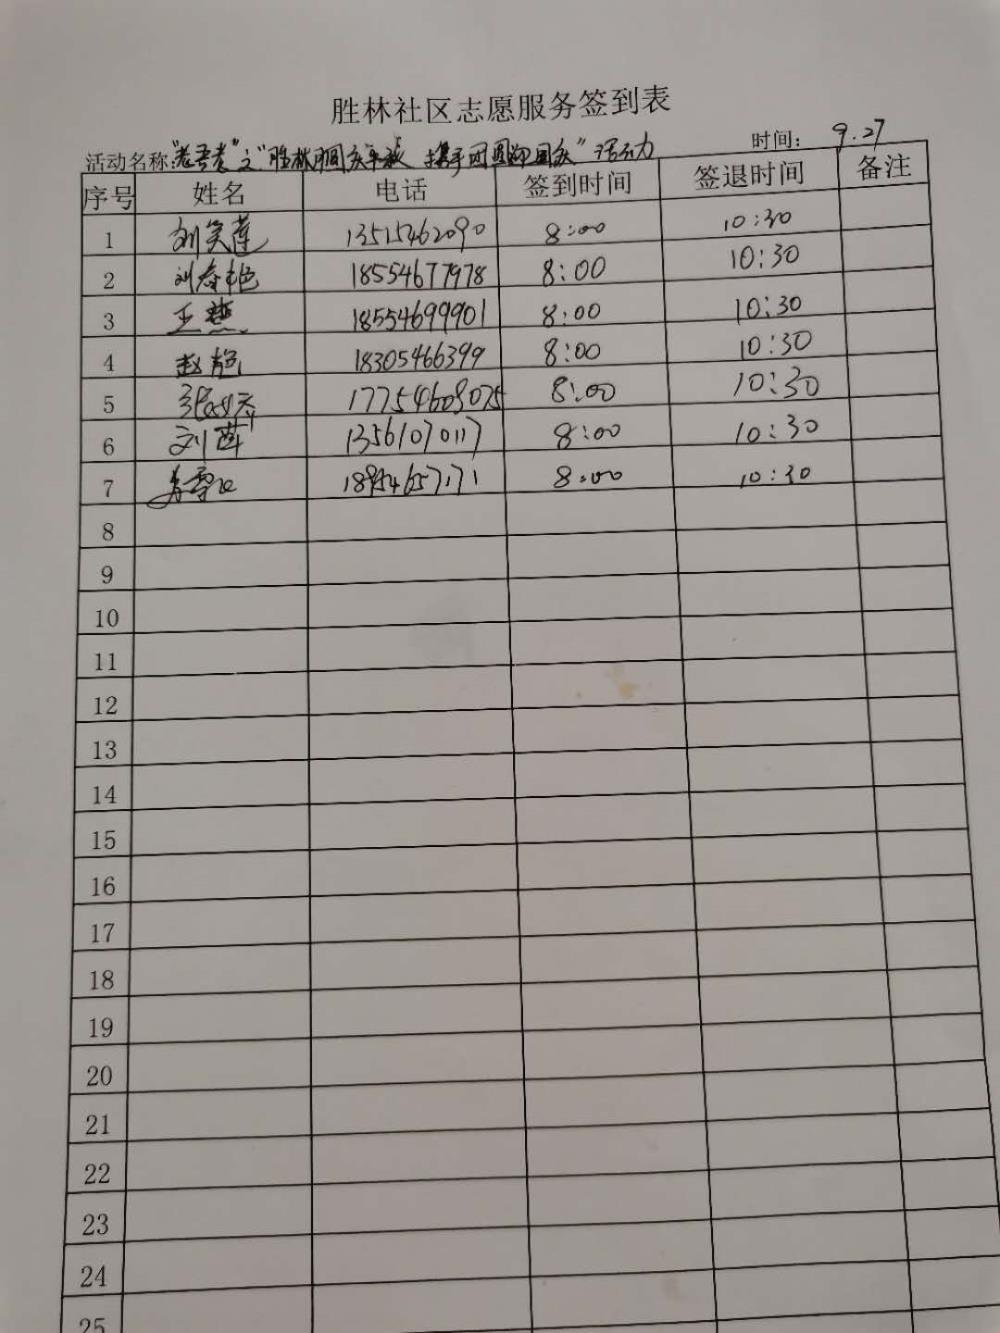 胜林社区志愿服务签到表
活动名称:"老吾老"之"胜林 携手团圆迎国庆"活动 时间: 9.27
序号 姓名 电话 签到时间 签退时间 备注
1 刘笑莲 13515462090 8:00 10:30
2 刘春艳 18554677978 8:00 10:30
3 王慧 18554699901 8:00 10:30
4 赵艳 18305466399 8:00 10:30
5 17754609075 8:00 10:30
6 刘莲 13561070117 8:00 10:30
7 18954657171 8:00 10:30
8
9
10
11
12
13
14
15
16
17
18
19
20
21
22
23
24
25